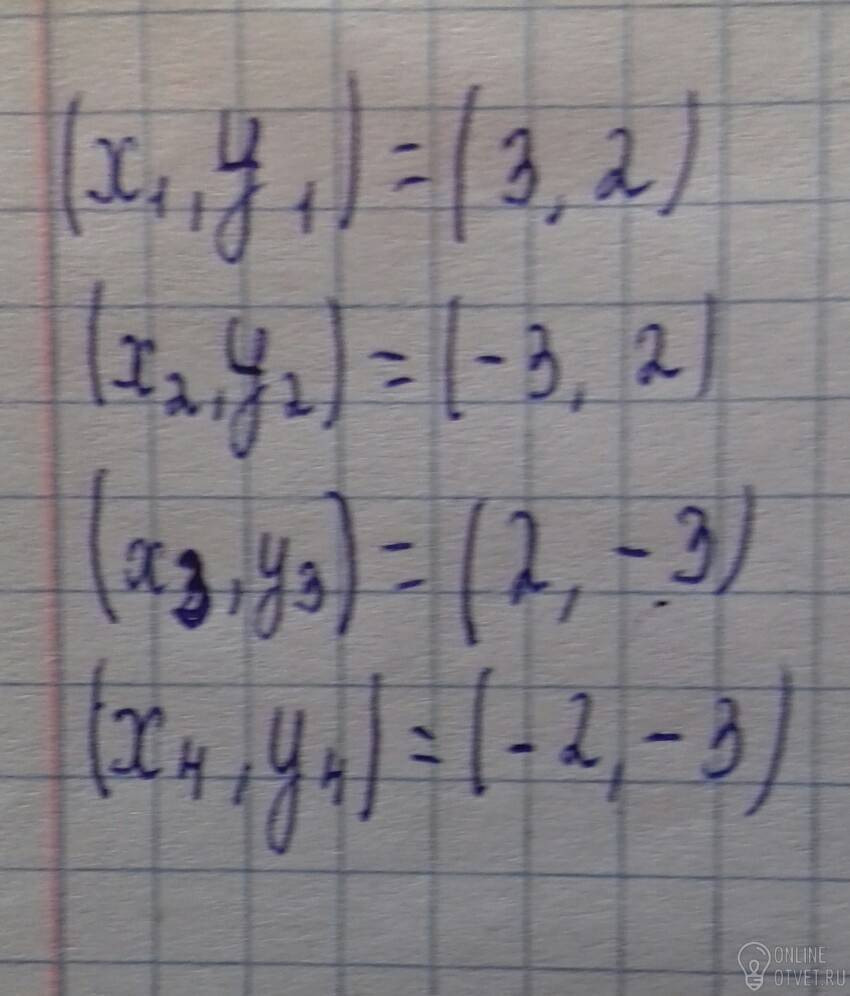 (x₁, y₁) = (3, 2)
(x₂, y₂) = (-3, 2)
(x₃, y₃) = (2, -3)
(x₄, y₄) = (-2, -3)
ONLINE
OTVET.RU